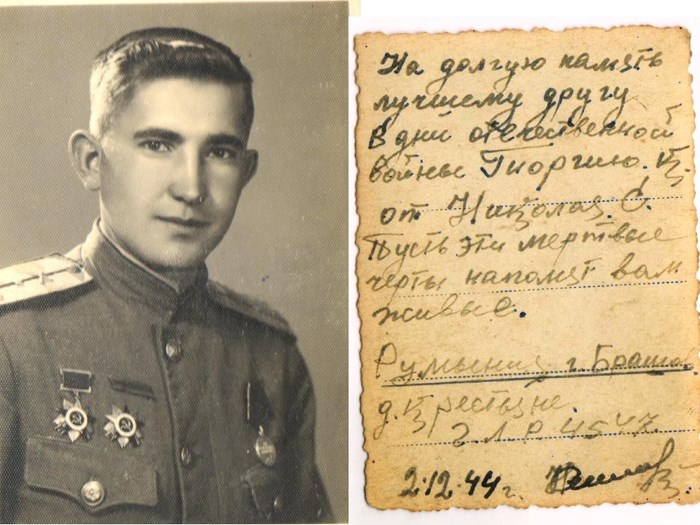 На долгую память
лучшему другу
В дни отечественной
войны Георгию. К.
от Николая. С.
Пусть эти мертвые
черты напомят вам
живые.
Румыния г. Брашов
2.12.44 г.